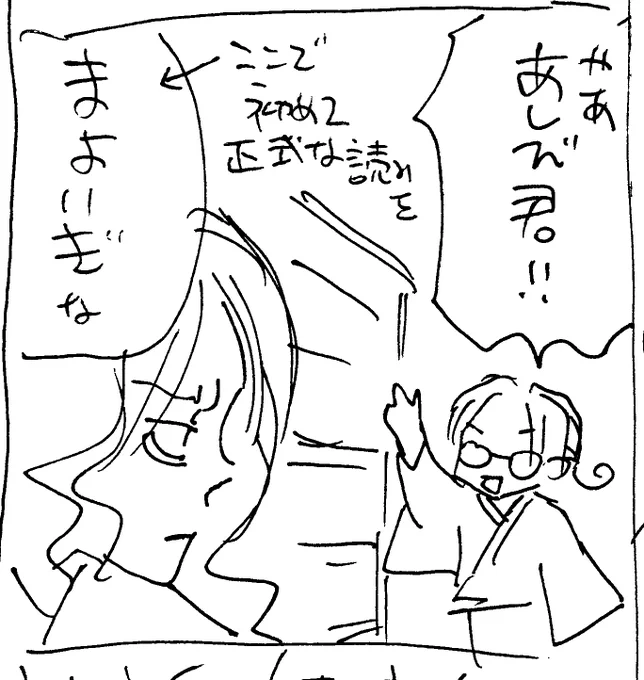 やあ
あしび君!!
ここで
初めて
正式な読みを
まよいぎな